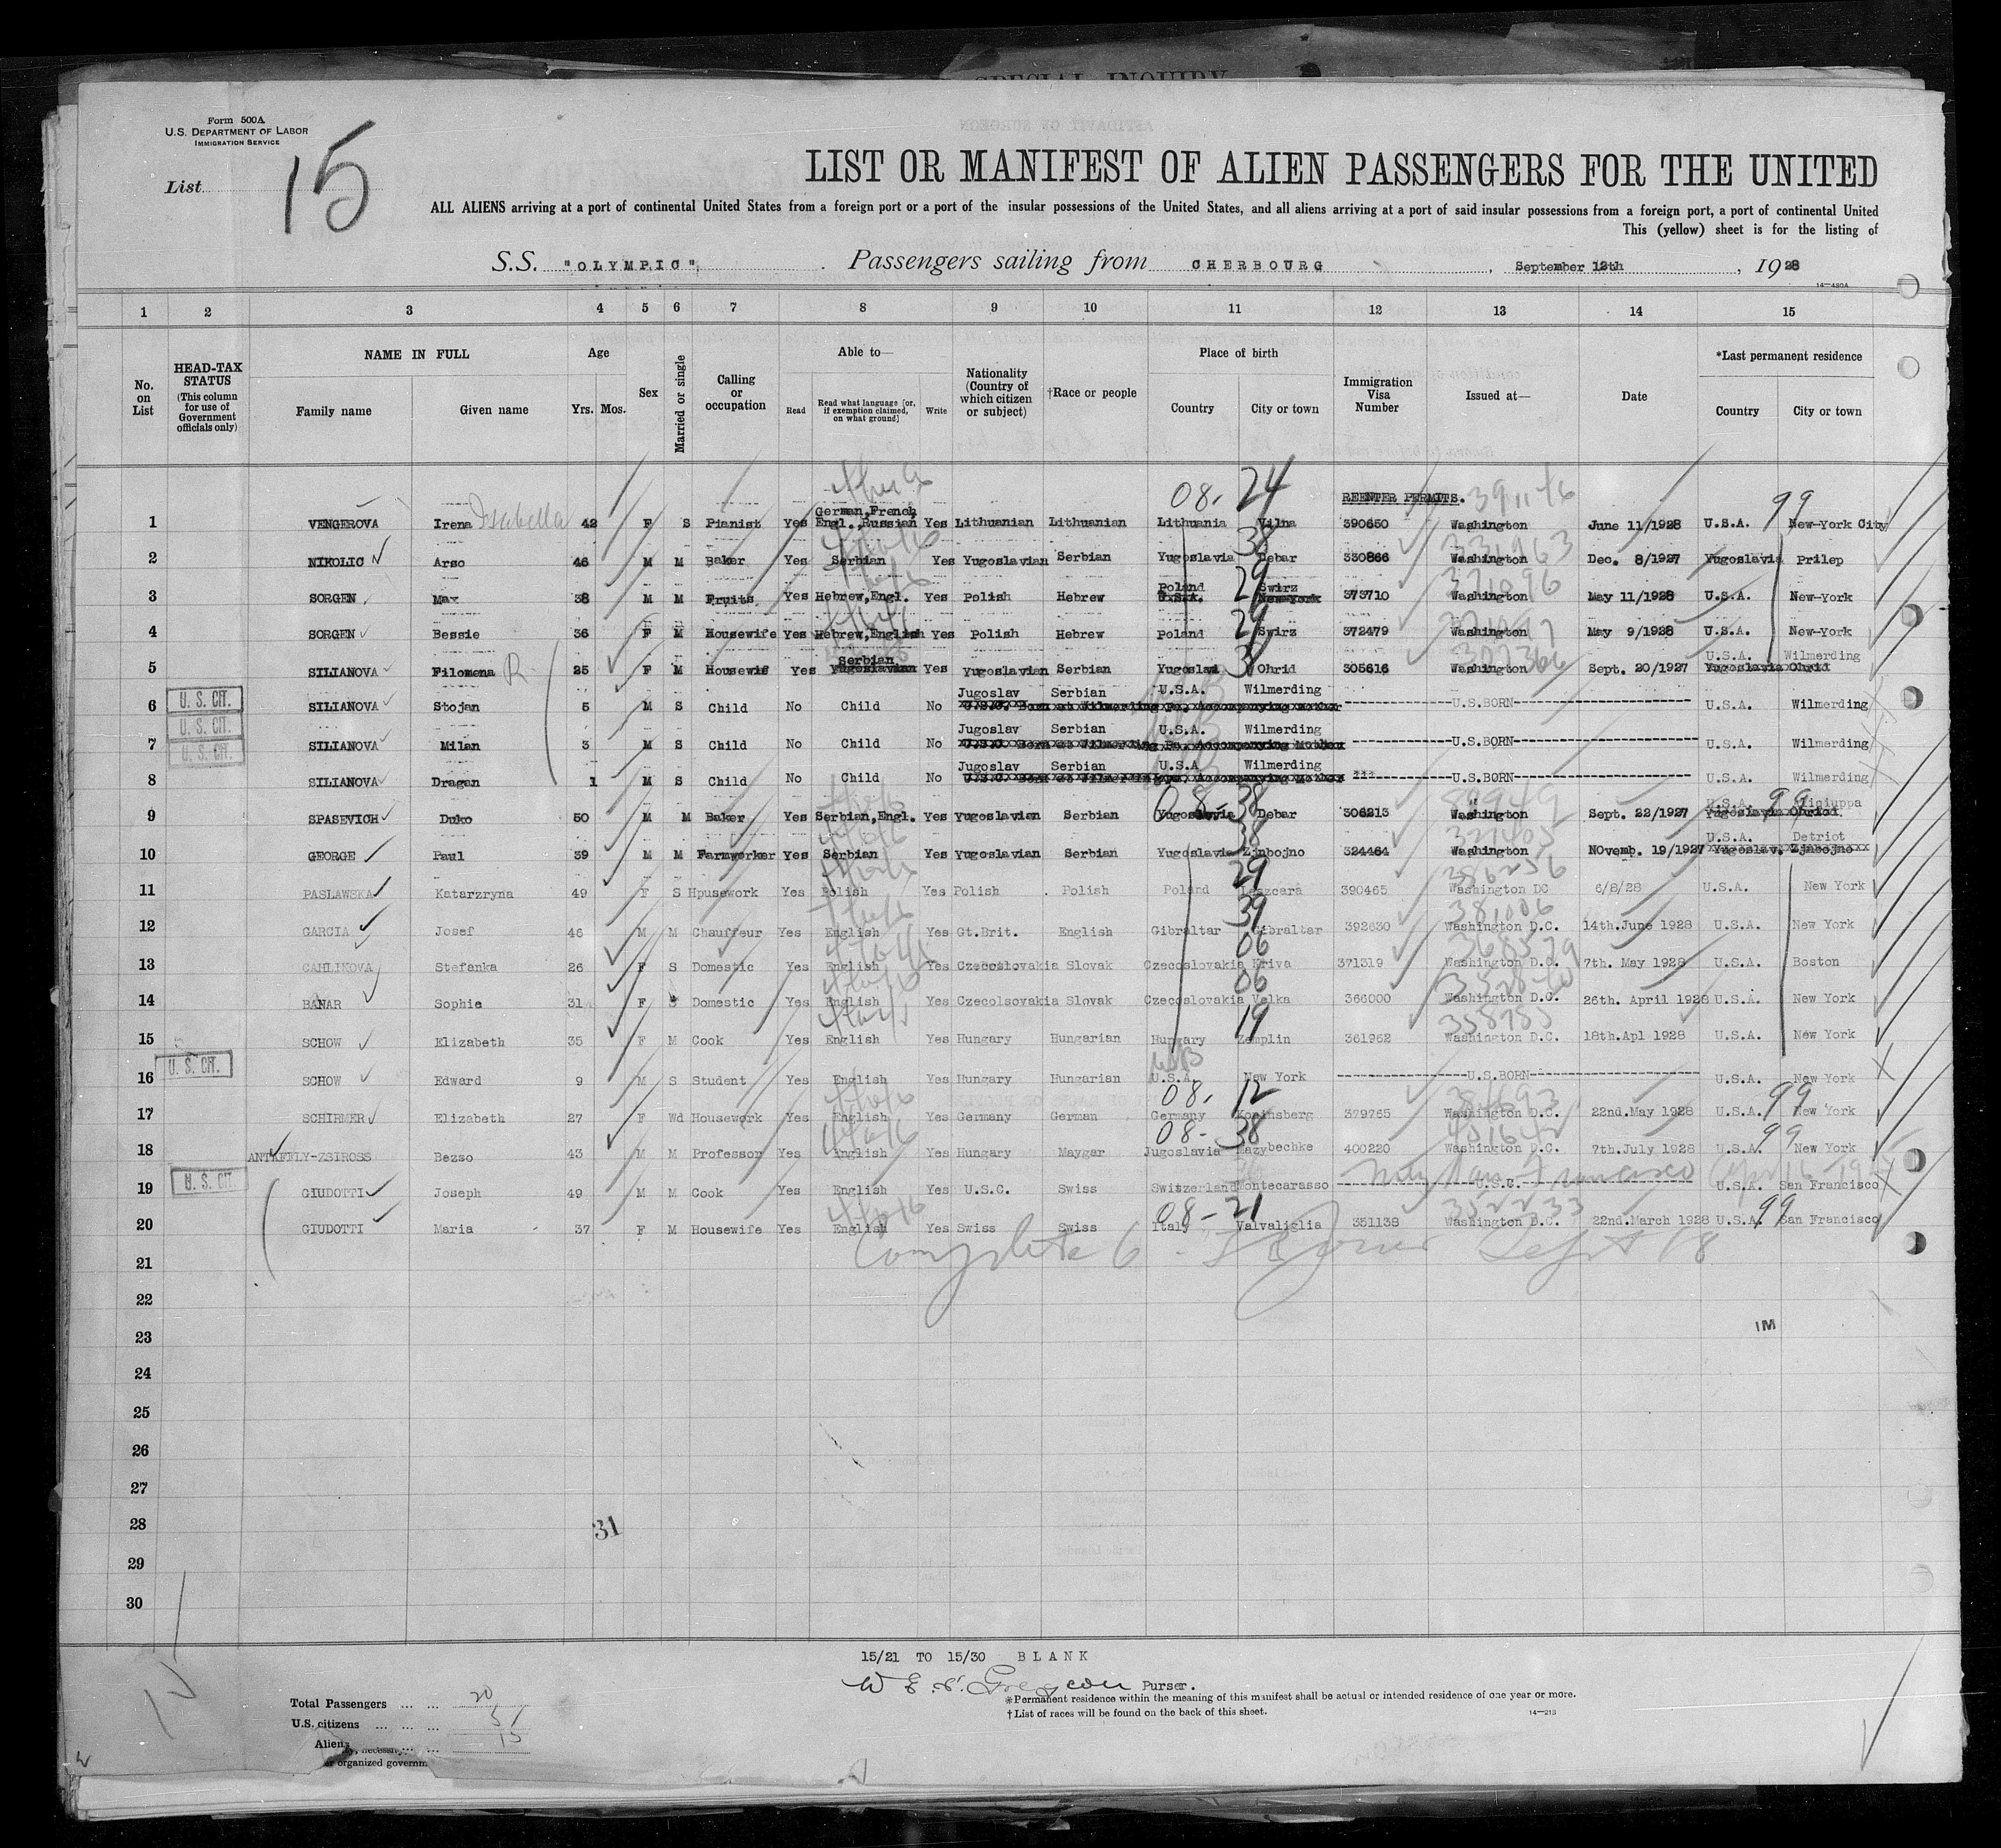 SPECIAL INQUIRY
Form 500A
U.S. DEPARTMENT OF LABOR
IMMIGRATION SERVICE
List 15
LIST OR MANIFEST OF ALIEN PASSENGERS FOR THE UNITED
ALL ALIENS arriving at a port of continental United States from a foreign port or a port of the insular possessions of the United States, and all aliens arriving at a port of said insular possessions from a foreign port, a port of continental United
This (yellow) sheet is for the listing of
S.S. "OLYMPIC", Passengers sailing from CHERBOURG, September 12th, 1928
14—480A
1 2 3 4 5 6 7 8 9 10 11 12 13 14 15
No. on List
HEAD-TAX STATUS (This column for use of Government officials only)
NAME IN FULL Family name Given name
Age Yrs. Mos.
Sex
Married or single
Calling or occupation
Able to— Read Read what language [or, if exemption claimed, on what ground] Write
Nationality (Country of which citizen or subject)
†Race or people
Place of birth Country City or town
Immigration Visa Number
Issued at—
Date
*Last permanent residence Country City or town
08. 24 REENTER PERMITS. 99
1 VENGEROVA Irena Isabella 42 F S Pianist Yes German, French, Engl., Russian Yes Lithuanian Lithuanian Lithuania Vilna 390650 Washington June 11/1928 U.S.A. New-York City
2 NIKOLIC Arso 46 M M Baker Yes Serbian Yes Yugoslavian Serbian Yugoslavia 38 Debar 330866 Washington Dec. 8/1927 Yugoslavia Prilep
3 SORGEN Max 38 M M Fruits Yes Hebrew, Engl. Yes Polish Hebrew Poland U.S.A. 29 Swirz New-York 373710 Washington May 11/1928 U.S.A. New-York
4 SORGEN Bessie 36 F M Housewife Yes Hebrew, English Yes Polish Hebrew Poland 29 Swirz 372479 Washington May 9/1928 U.S.A. New-York
5 SILIANOVA Filomena R 25 F M Housewif Yes Serbian Yugoslavian Yes Yugoslavian Serbian Yugoslavi 38 Ohrid 305616 Washington Sept. 20/1927 U.S.A. Wilmerding Yugoslavia Ohrid
6 U. S. CIT. SILIANOVA Stojan 5 M S Child No Child No Jugoslav Serbian U.S.A. Wilmerding U.S.C. Born at Wilmerding Pa. Accompanying mother U.S.BORN U.S.A. Wilmerding
7 U. S. CIT. SILIANOVA Milan 3 M S Child No Child No Jugoslav Serbian U.S.A. Wilmerding U.S.C. Born at Wilmerding Pa. Accompanying Mother U.S.BORN U.S.A. Wilmerding
8 U. S. CIT. SILIANOVA Dragan 1 M S Child No Child No Jugoslav Serbian U.S.A Wilmerding U.S.BORN U.S.A. Wilmerding
9 SPASEVICH Duko 50 M M Baker Yes Serbian, Engl. Yes Yugoslavian Serbian 08- 38 Yugoslavia Debar 306213 Washington Sept. 22/1927 U.S.A. 99
10 GEORGE Paul 39 M M Farmworker Yes Serbian Yes Yugoslavian Serbian Yugoslavia 38 Zjnbojno 324464 Washington NOvemb. 19/1927 U.S.A. Detriot Yugoslav.
11 PASLAWSKA Katarzryna 49 F S Hpusework Yes Polish Yes Polish Polish Poland 29 390465 Washington DC 6/8/28 U.S.A. New York
12 GARCIA Josef 46 M M Chauffeur Yes English Yes Gt.Brit. English Gibraltar 39 Gibraltar 392630 Washington D.C. 14th.June 1928 U.S.A. New York
13 CAHLIKOVA Stefanka 26 F S Domestic Yes English Yes Czecoslovakia Slovak Czecoslovakia 06 Kriva 371319 Washington D.C. 7th. May 1928 U.S.A. Boston
14 BANAR Sophie 31 F S Domestic Yes English Yes Czecolsovakia Slovak Czecoslovakia 06 Velka 366000 Washington D.C. 26th. April 1928 U.S.A. New York
15 SCHOW Elizabeth 35 F M Cook Yes English Yes Hungary Hungarian Hungary 19 Zemplin 361962 Washington D.C. 18th.Apl 1928 U.S.A. New York
16 U. S. CIT. SCHOW Edward 9 M S Student Yes English Yes Hungary Hungarian U.S.A. New York U.S.BORN U.S.A. New York
17 SCHIRMER Elizabeth 27 F Wd Housework Yes English Yes Germany German 08. 12 Germany 379765 Washington D.C. 22nd.May 1928 U.S.A. 99 New York
18 ANTKEFLY-ZSIROSS Bezso 43 M M Professor Yes English Yes Hungary Maygar 08- 38 Jugoslavia Mazybechke 400220 Washington D.C. 7th.July 1928 U.S.A. 99 New York
19 U. S. CIT. GIUDOTTI Joseph 49 M M Cook Yes English Yes U.S.C. Swiss Switzerland Montecarasso U.S.C. U.S.A. San Francisco
20 GIUDOTTI Maria 37 F M Housewife Yes English Yes Swiss Swiss 08-21 Italy Valvaliglia 351138 Washington D.C. 22nd.March 1928 U.S.A. 99 San Francisco
21
22
23
1M
24
25
26
27
28 31
29
30
15/21 TO 15/30 BLANK
Purser.
Total Passengers 20
U.S. citizens 5
Aliens 15
*Permanent residence within the meaning of this manifest shall be actual or intended residence of one year or more.
†List of races will be found on the back of this sheet.
14—213